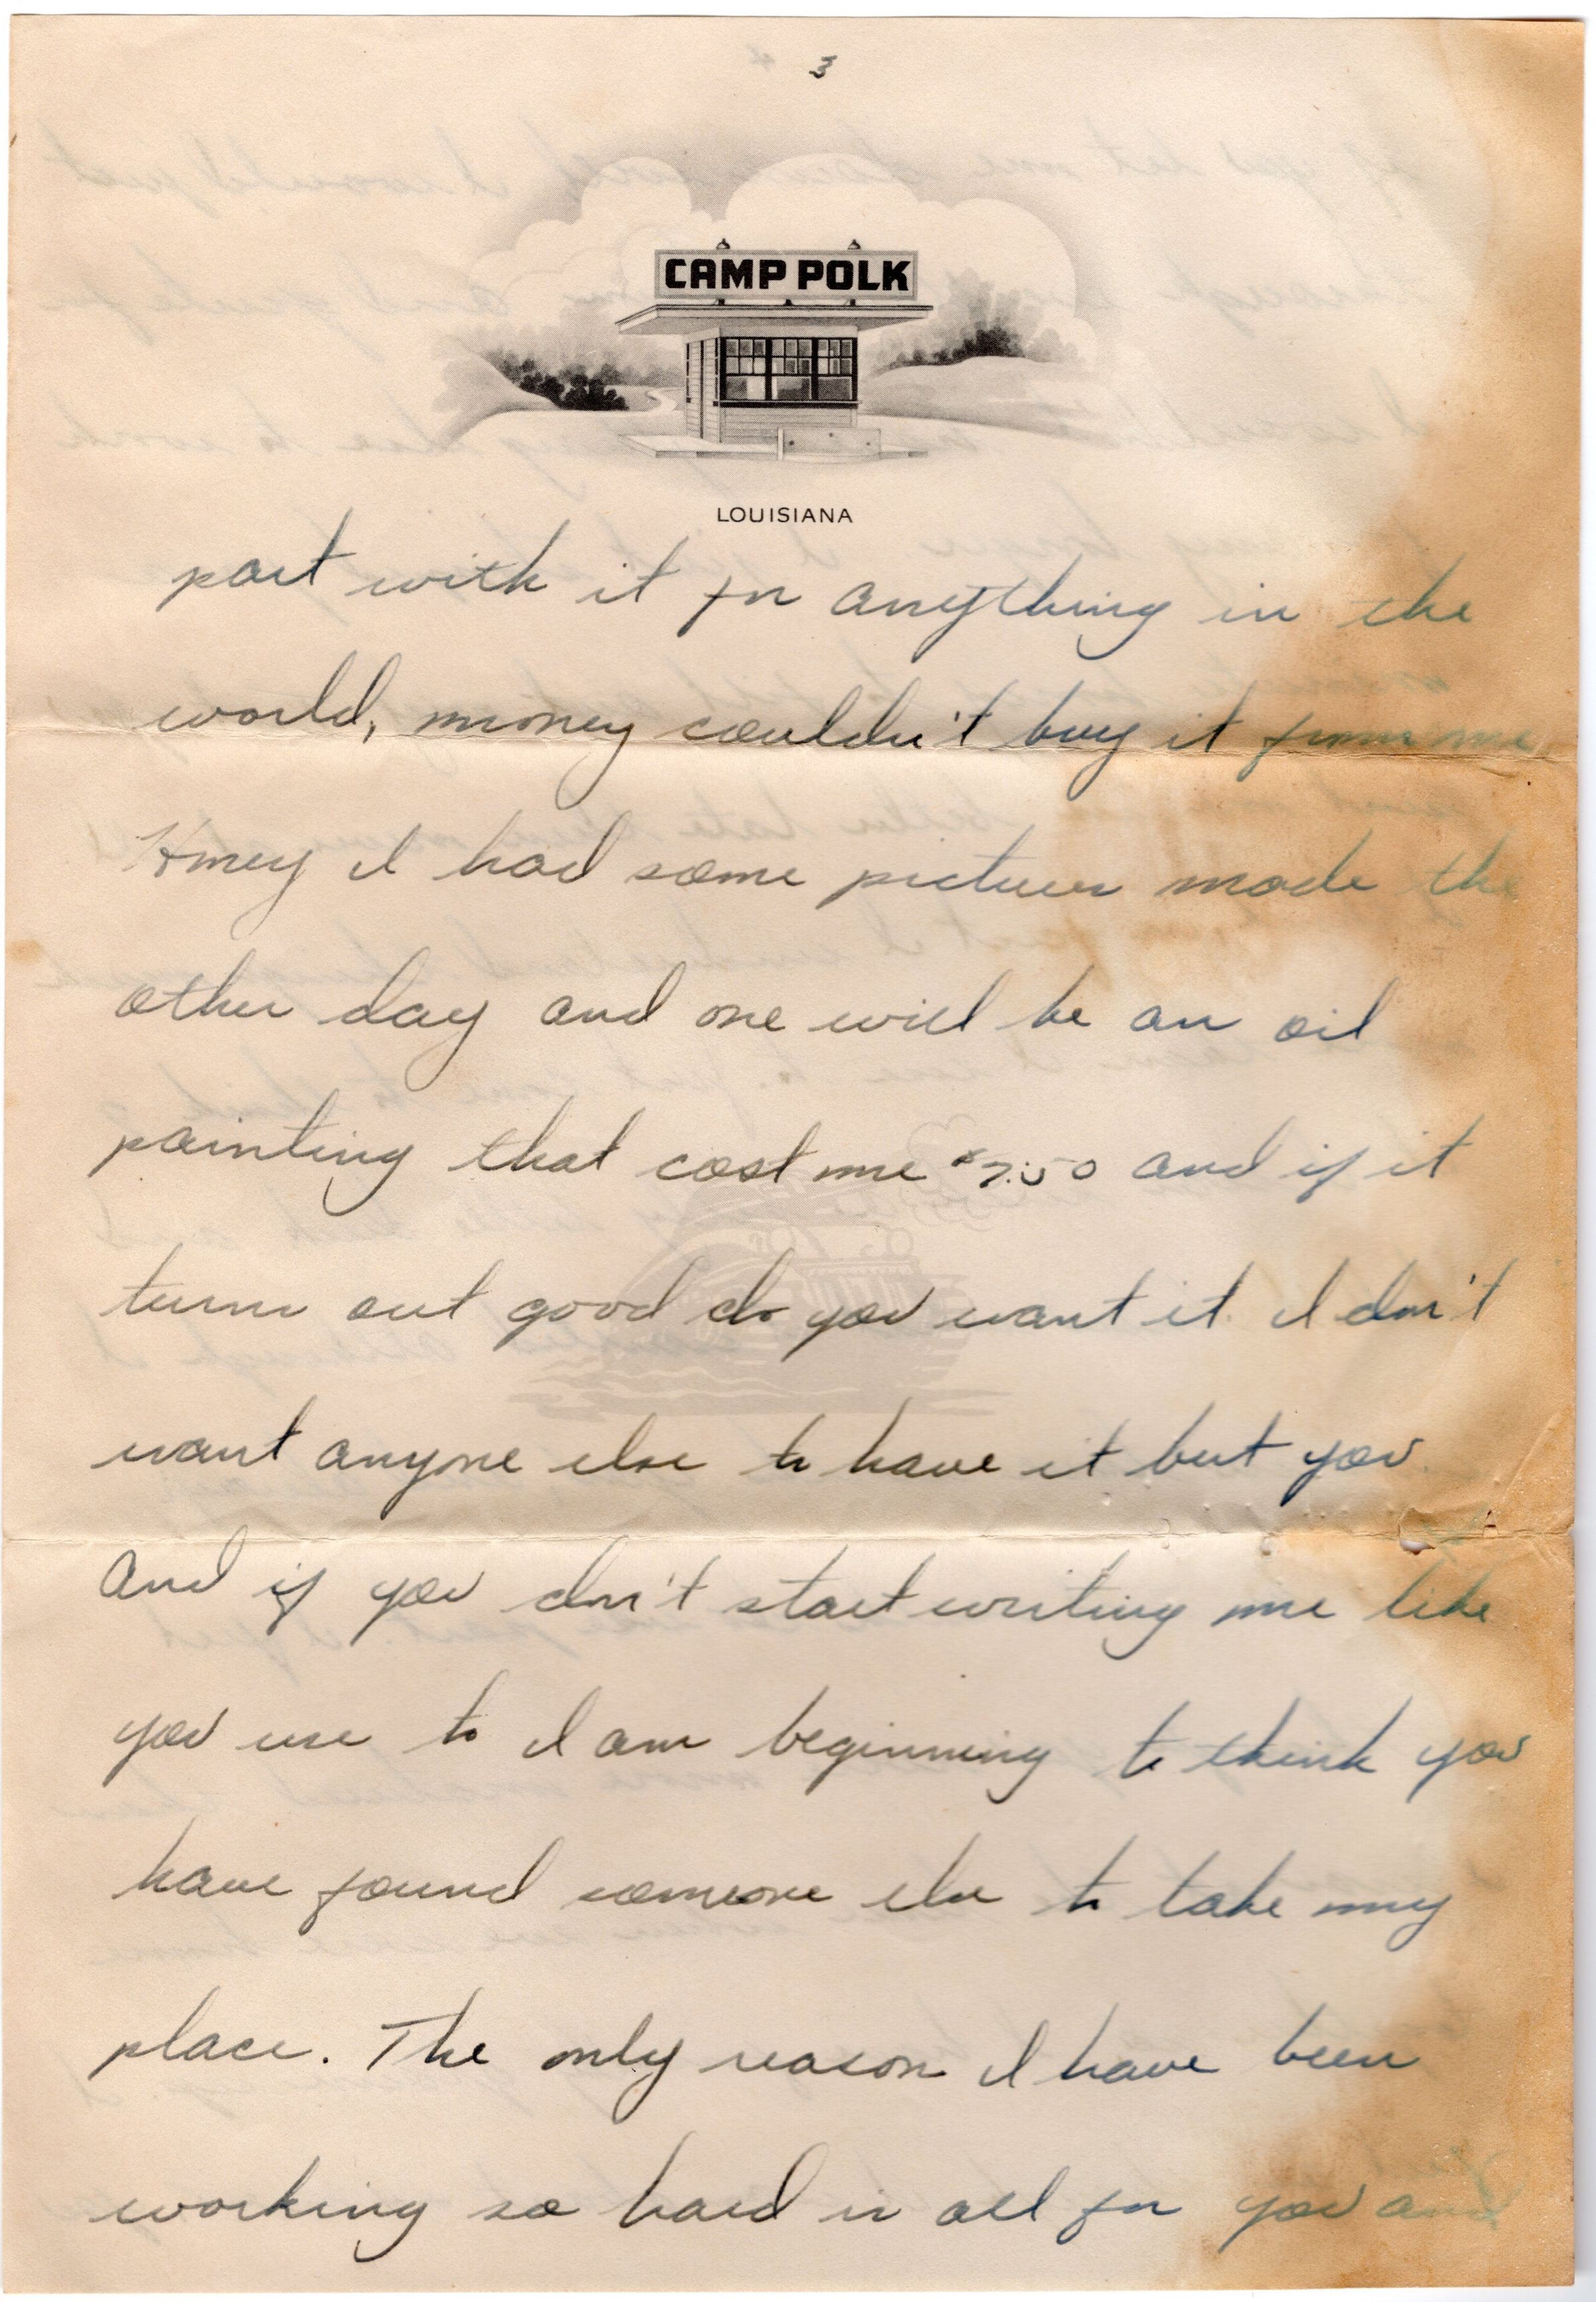 3
CAMP POLK
LOUISIANA
part with it for anything in the
world, money couldn't buy it from me
Honey I had some pictures made the
other day and one will be an oil
painting that cost me $7.50 and if it
turns out good do you want it. I don't
want anyone else to have it but you.
And if you don't start writing me like
you use to I am beginning to think you
have found someone else to take my
place. The only reason I have been
working so hard is all for you and